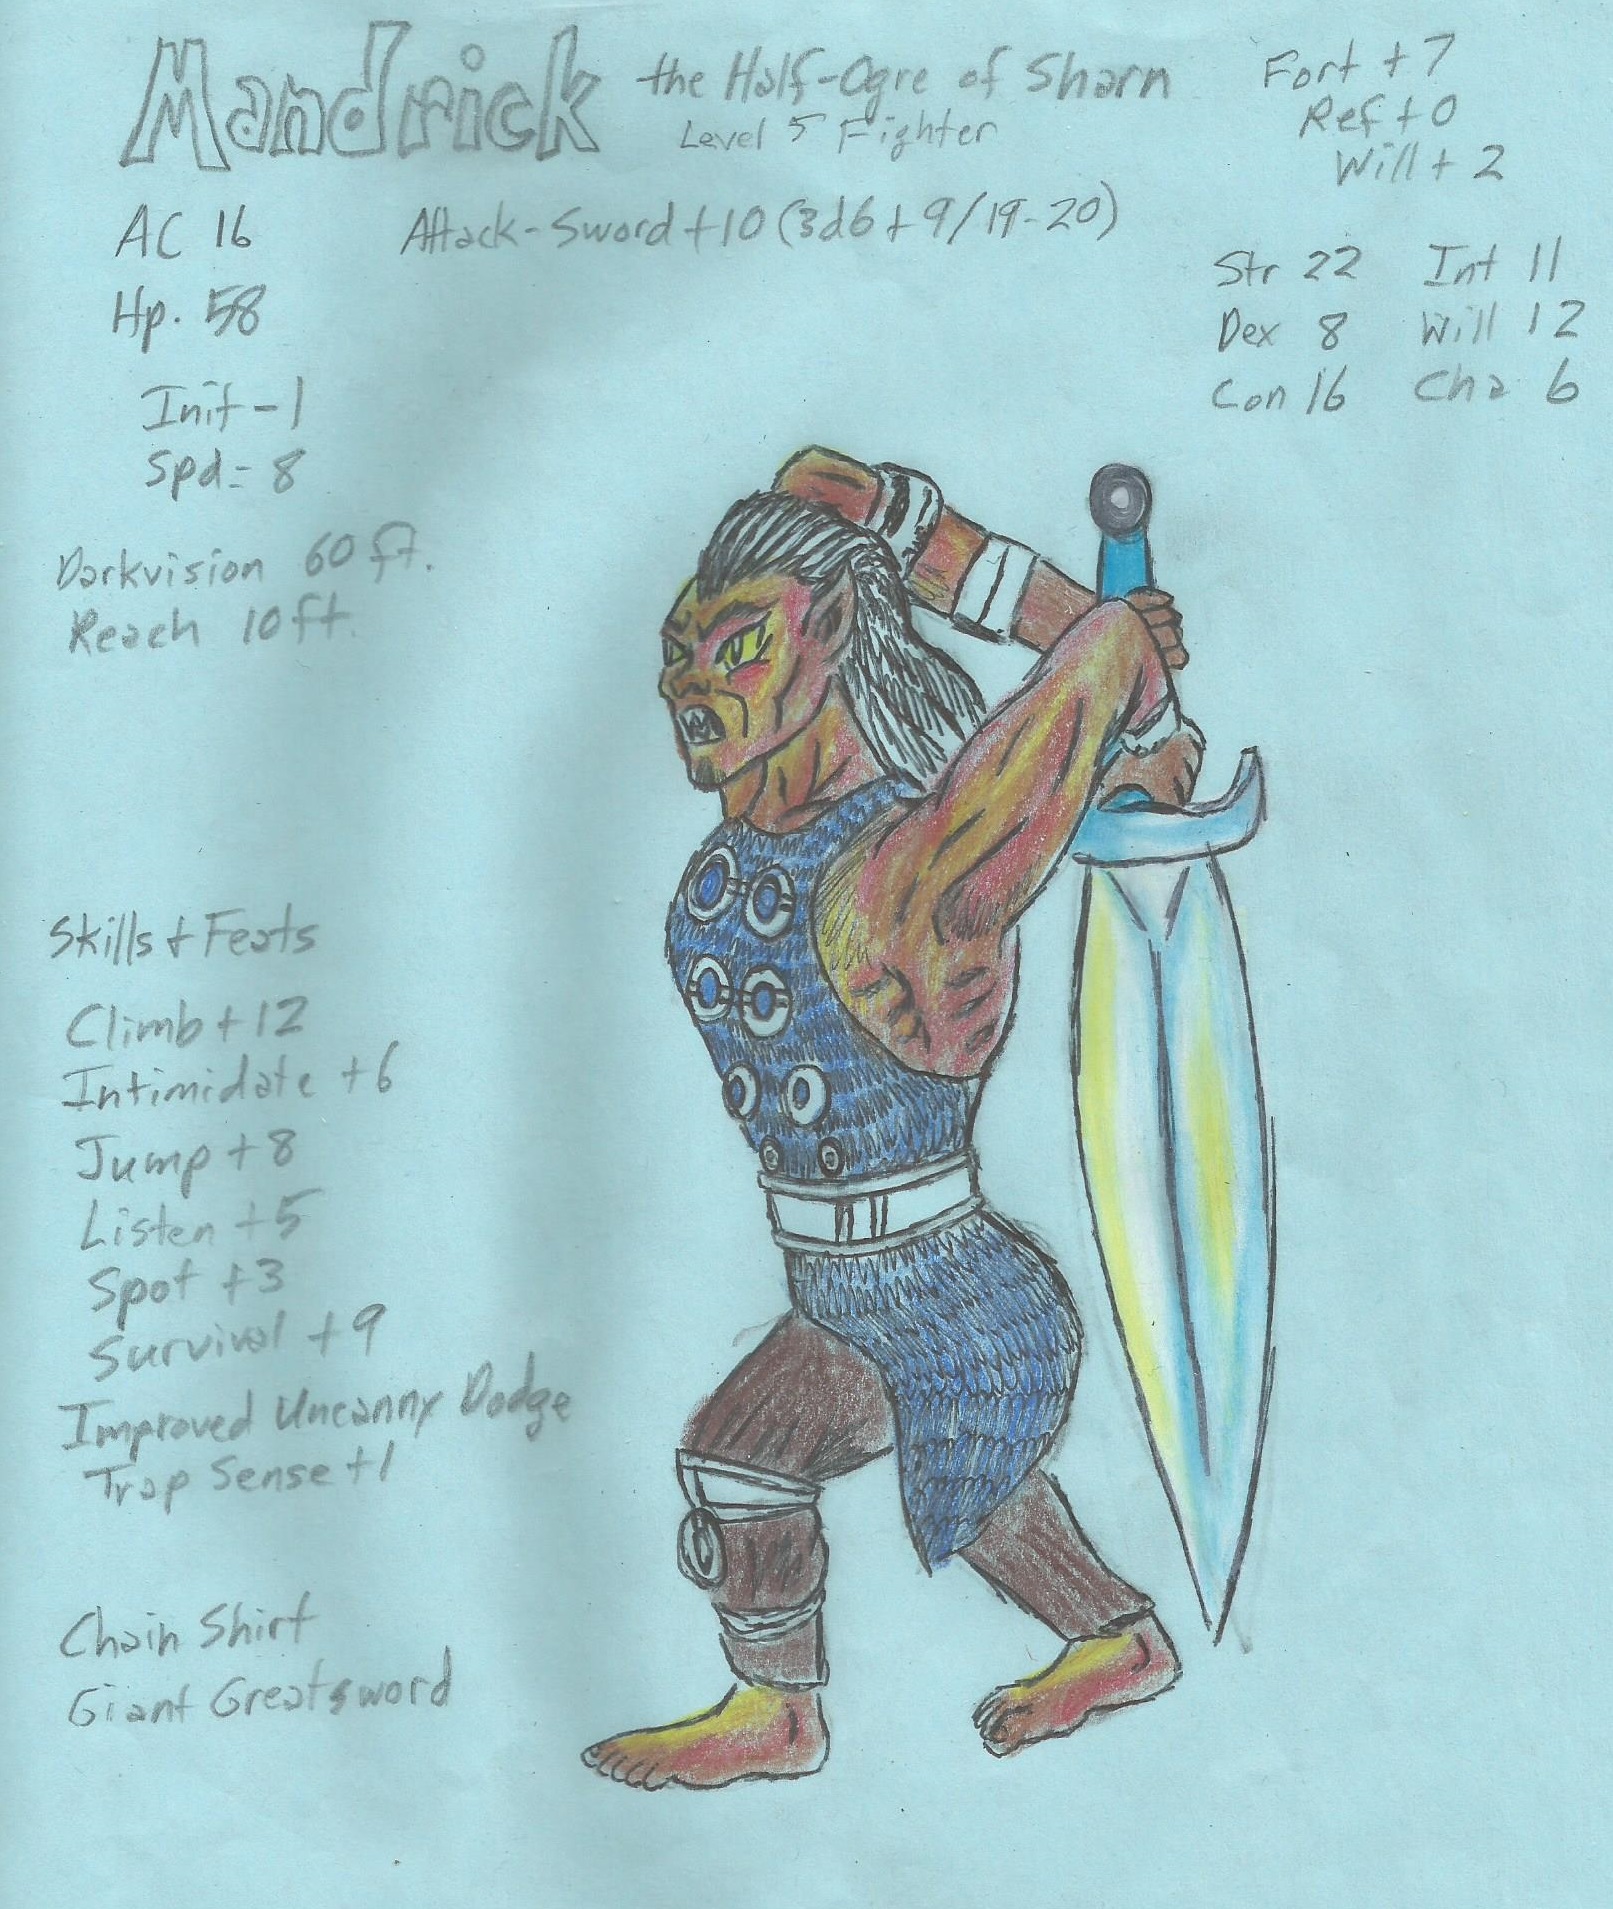 Mandrick the Half-Ogre of Sharn
Level 5 Fighter
Fort +7
Ref +0
Will + 2
AC 16
Attack - Sword +10 (3d6 + 9/19-20)
Hp. 58
Str 22 Int 11
Dex 8 Will 12
Con 16 Cha 6
Init - 1
Spd = 8
Darkvision 60 ft.
Reach 10 ft.
Skills + Feats
Climb + 12
Intimidate +6
Jump + 8
Listen +5
Spot +3
Survival +9
Improved Uncanny Dodge
Trap Sense +1
Chain Shirt
Giant Greatsword